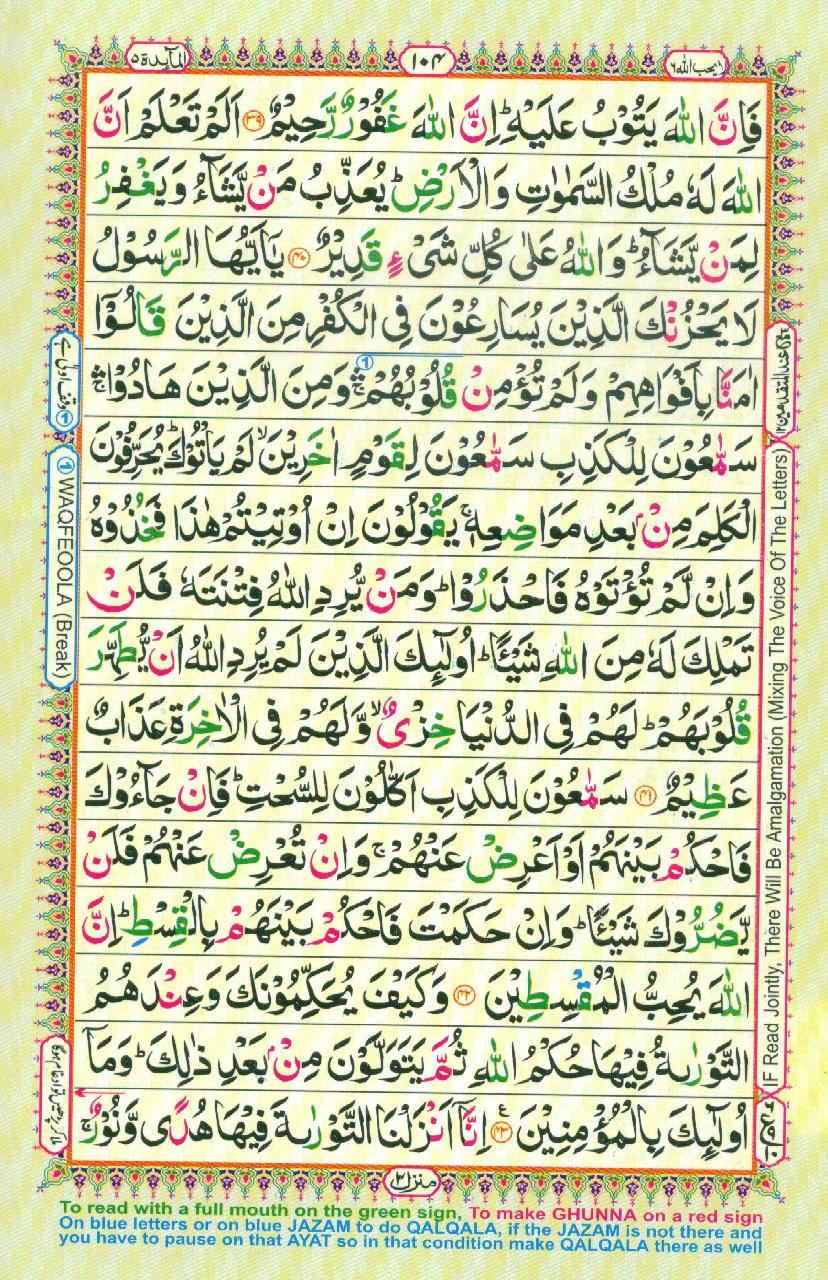 لا یحب الله ٦
١٠٤
المآىدة ٥
فَاِنَّ اللهَ يَتُوْبُ عَلَيْهِ ؕ اِنَّ اللهَ غَفُوْرٌ رَّحِيْمٌ ﴿۳۹﴾ اَلَمْ تَعْلَمْ اَنَّ
اللهَ لَهٗ مُلْكُ السَّمٰوٰتِ وَالْاَرْضِ ؕ يُعَذِّبُ مَنْ يَّشَآءُ وَيَغْفِرُ
لِمَنْ يَّشَآءُ ؕ وَاللهُ عَلٰى كُلِّ شَىْءٍ قَدِيْرٌ ﴿۴۰﴾ يٰۤاَيُّهَا الرَّسُوْلُ
لَا يَحْزُنْكَ الَّذِيْنَ يُسَارِعُوْنَ فِى الْكُفْرِ مِنَ الَّذِيْنَ قَالُوْۤا
اٰمَنَّا بِاَفْوَاهِهِمْ وَلَمْ تُؤْمِنْ قُلُوْبُهُمْ ۛۚ وَمِنَ الَّذِيْنَ هَادُوْا ۛۚ
سَمّٰعُوْنَ لِلْكَذِبِ سَمّٰعُوْنَ لِقَوْمٍ اٰخَرِيْنَ ۙ لَمْ يَاْتُوْكَ ؕ يُحَرِّفُوْنَ
الْكَلِمَ مِنْۢ بَعْدِ مَوَاضِعِهٖ ۚ يَقُوْلُوْنَ اِنْ اُوْتِيْتُمْ هٰذَا فَخُذُوْهُ
وَاِنْ لَّمْ تُؤْتَوْهُ فَاحْذَرُوْا ؕ وَمَنْ يُّرِدِ اللهُ فِتْنَتَهٗ فَلَنْ
تَمْلِكَ لَهٗ مِنَ اللهِ شَيْـًٔا ؕ اُولٰٓئِكَ الَّذِيْنَ لَمْ يُرِدِ اللهُ اَنْ يُّطَهِّرَ
قُلُوْبَهُمْ ؕ لَهُمْ فِى الدُّنْيَا خِزْىٌ ۙ وَّلَهُمْ فِى الْاٰخِرَةِ عَذَابٌ
عَظِيْمٌ ﴿۴۱﴾ سَمّٰعُوْنَ لِلْكَذِبِ اَكّٰلُوْنَ لِلسُّحْتِ ؕ فَاِنْ جَآءُوْكَ
فَاحْكُمْ بَيْنَهُمْ اَوْ اَعْرِضْ عَنْهُمْ ۚ وَاِنْ تُعْرِضْ عَنْهُمْ فَلَنْ
يَّضُرُّوْكَ شَيْـًٔا ؕ وَاِنْ حَكَمْتَ فَاحْكُمْ بَيْنَهُمْ بِالْقِسْطِ ؕ اِنَّ
اللهَ يُحِبُّ الْمُقْسِطِيْنَ ﴿۴۲﴾ وَكَيْفَ يُحَكِّمُوْنَكَ وَعِنْدَهُمُ
التَّوْرٰىةُ فِيْهَا حُكْمُ اللهِ ثُمَّ يَتَوَلَّوْنَ مِنْۢ بَعْدِ ذٰلِكَ ؕ وَمَاۤ
اُولٰٓئِكَ بِالْمُؤْمِنِيْنَ ﴿۴۳﴾ اِنَّاۤ اَنْزَلْنَا التَّوْرٰىةَ فِيْهَا هُدًى وَّنُوْرٌ ۚ
منزل ٢
① وقف اولیٰ ہے
① WAQFEOOLA (Break)
ملا کر پڑھیں تو ادغام ہوگا
IF Read Jointly, There Will Be Amalgamation (Mixing The Voice Of The Letters)
To read with a full mouth on the green sign, To make GHUNNA on a red sign
On blue letters or on blue JAZAM to do QALQALA, if the JAZAM is not there and
you have to pause on that AYAT so in that condition make QALQALA there as well